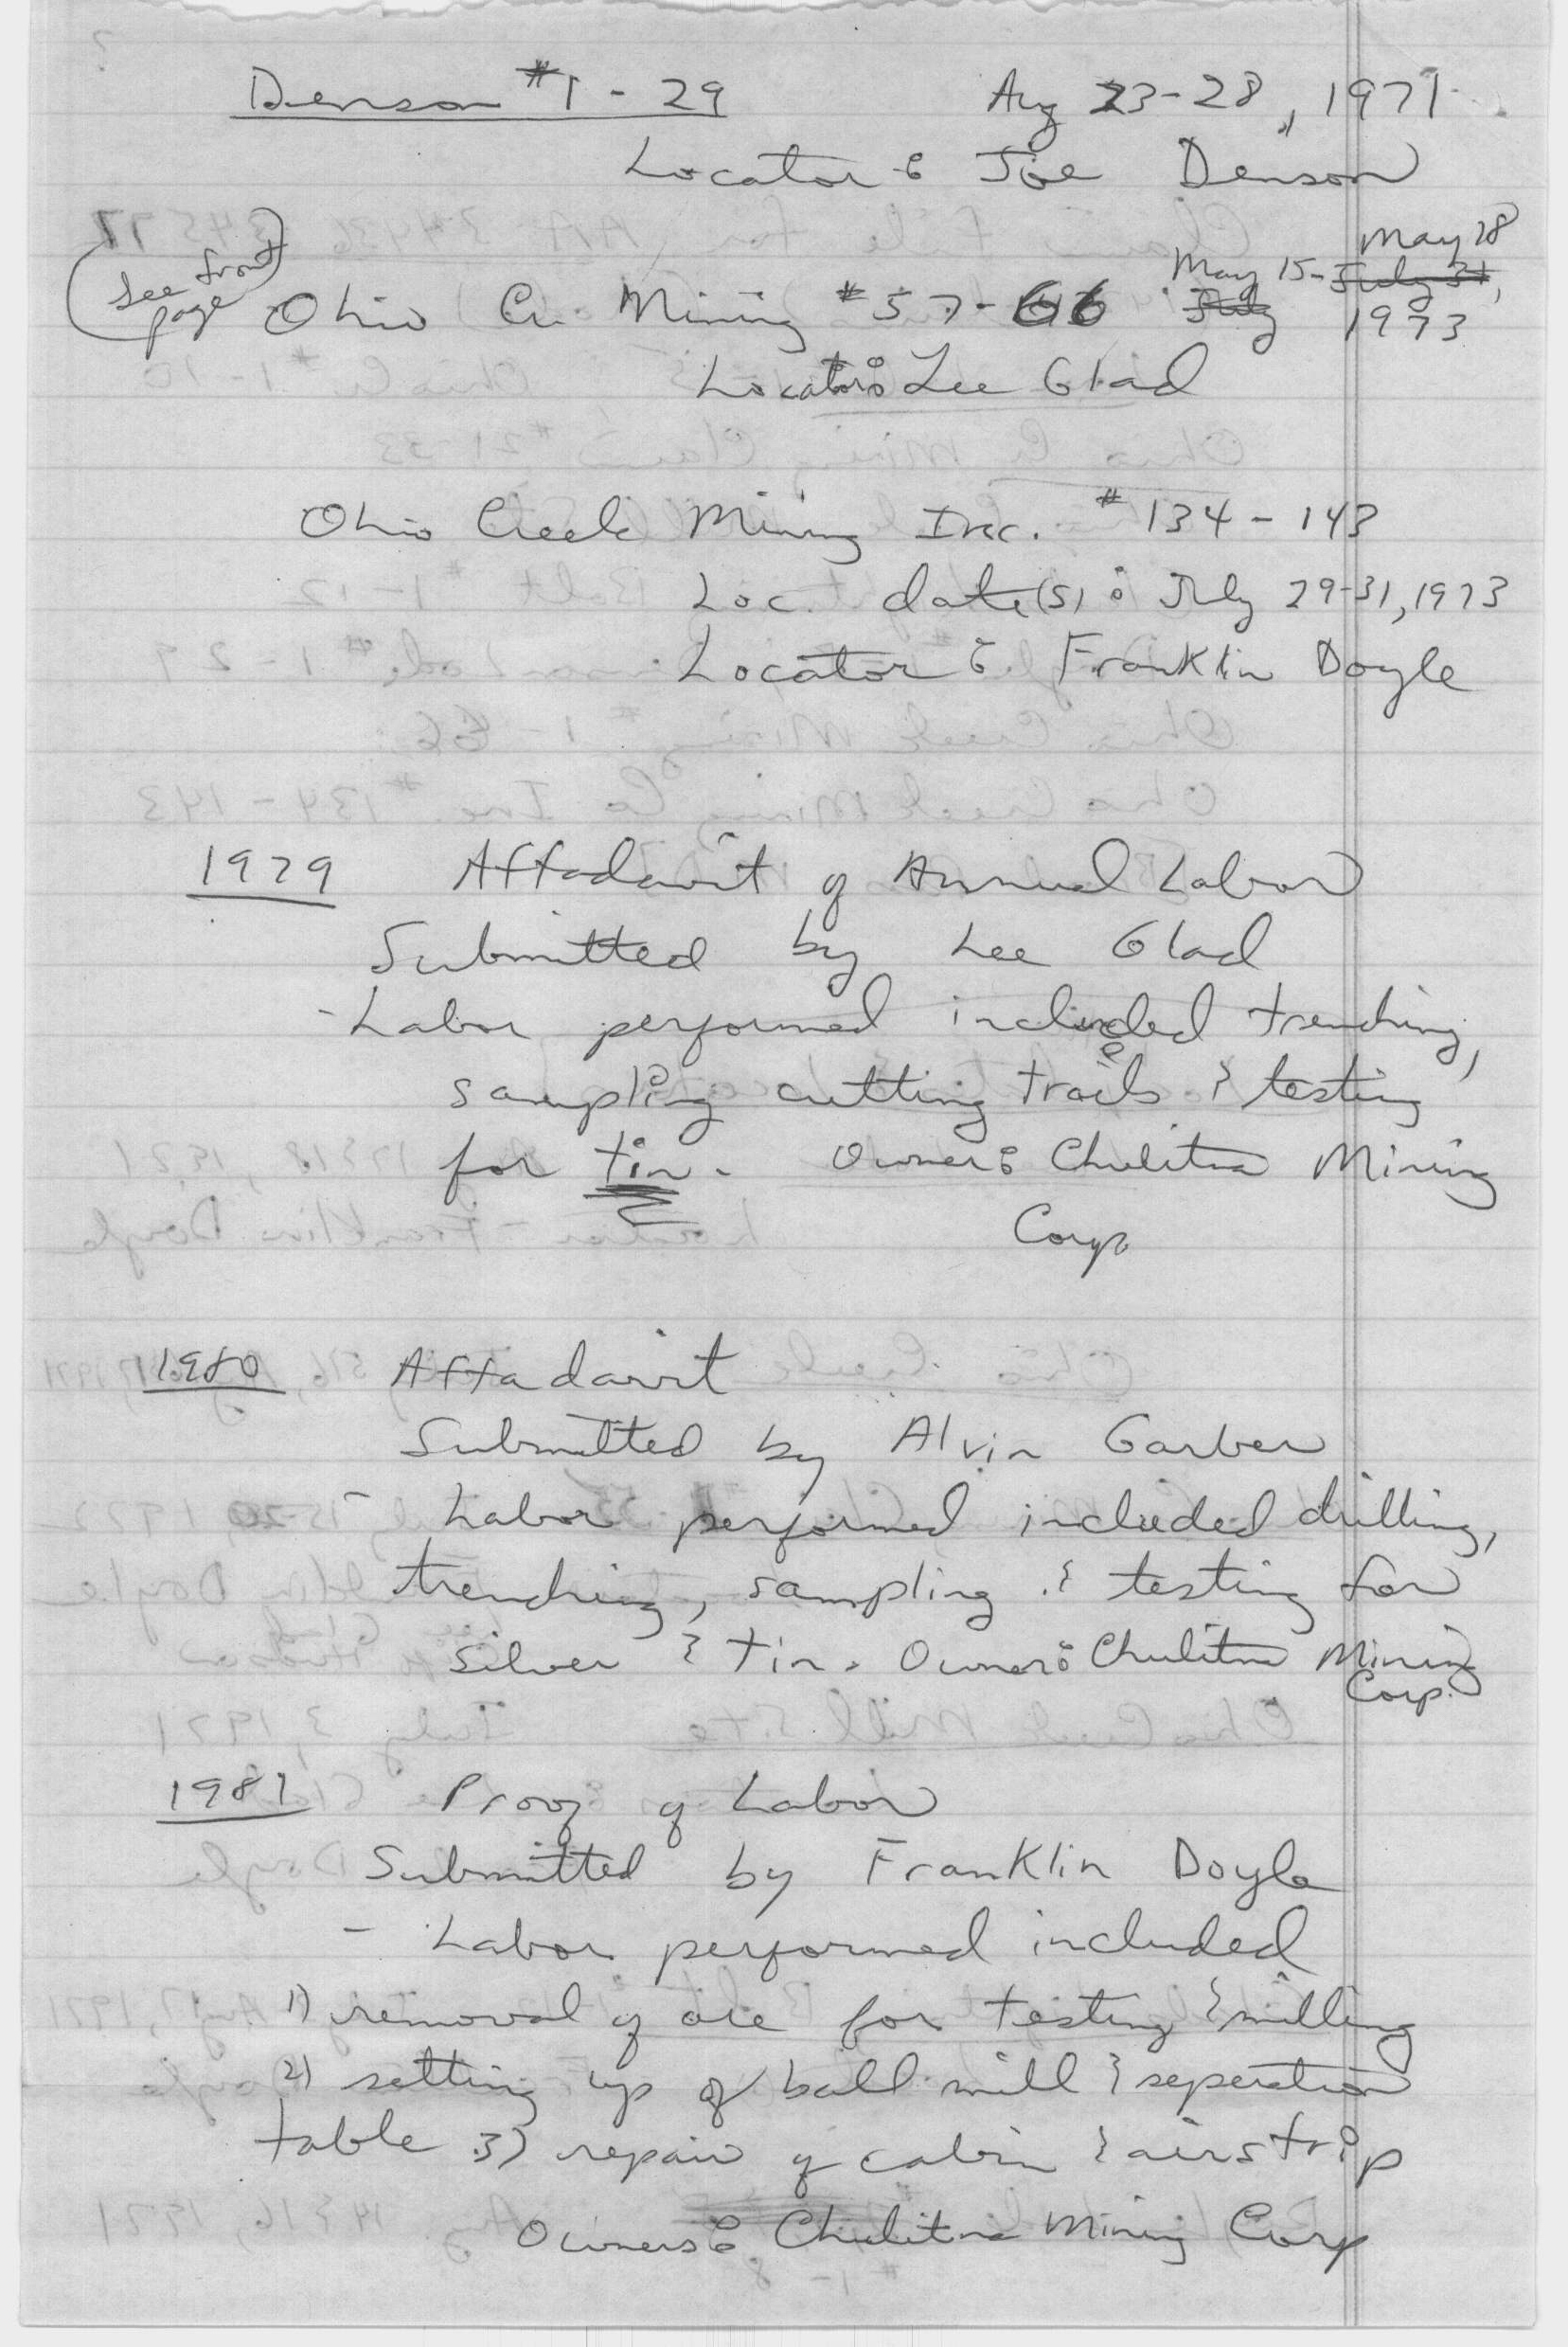 Denson #1 - 29 Aug 23-28, 1971
Locator: Joe Denson
(see front page) Ohio Cr. Mining #57-66 May 15- May 28
July July 31, 1973
Locator: Lee Glad
Ohio Creek Mining Inc. #134 - 143
Loc. date(s): July 29-31, 1973
Locator: Franklin Doyle
1979 Affadavit of Annual Labor
Submitted by Lee Glad
- Labor performed included trenching,
sampling cutting trails & testing
for tin. Owner: Chulitna Mining
Corp.
1980 Affadavit
Submitted by Alvin Garber
- Labor performed included drilling,
trenching, sampling & testing for
silver & tin. Owner: Chulitna Mining
Corp.
1981 Proof of Labor
Submitted by Franklin Doyle
- Labor performed included
1) removal of ore for testing & milling
2) setting up of ball mill & seperation
table 3) repair of cabin & airstrip
Owners: Chulitna Mining Corp